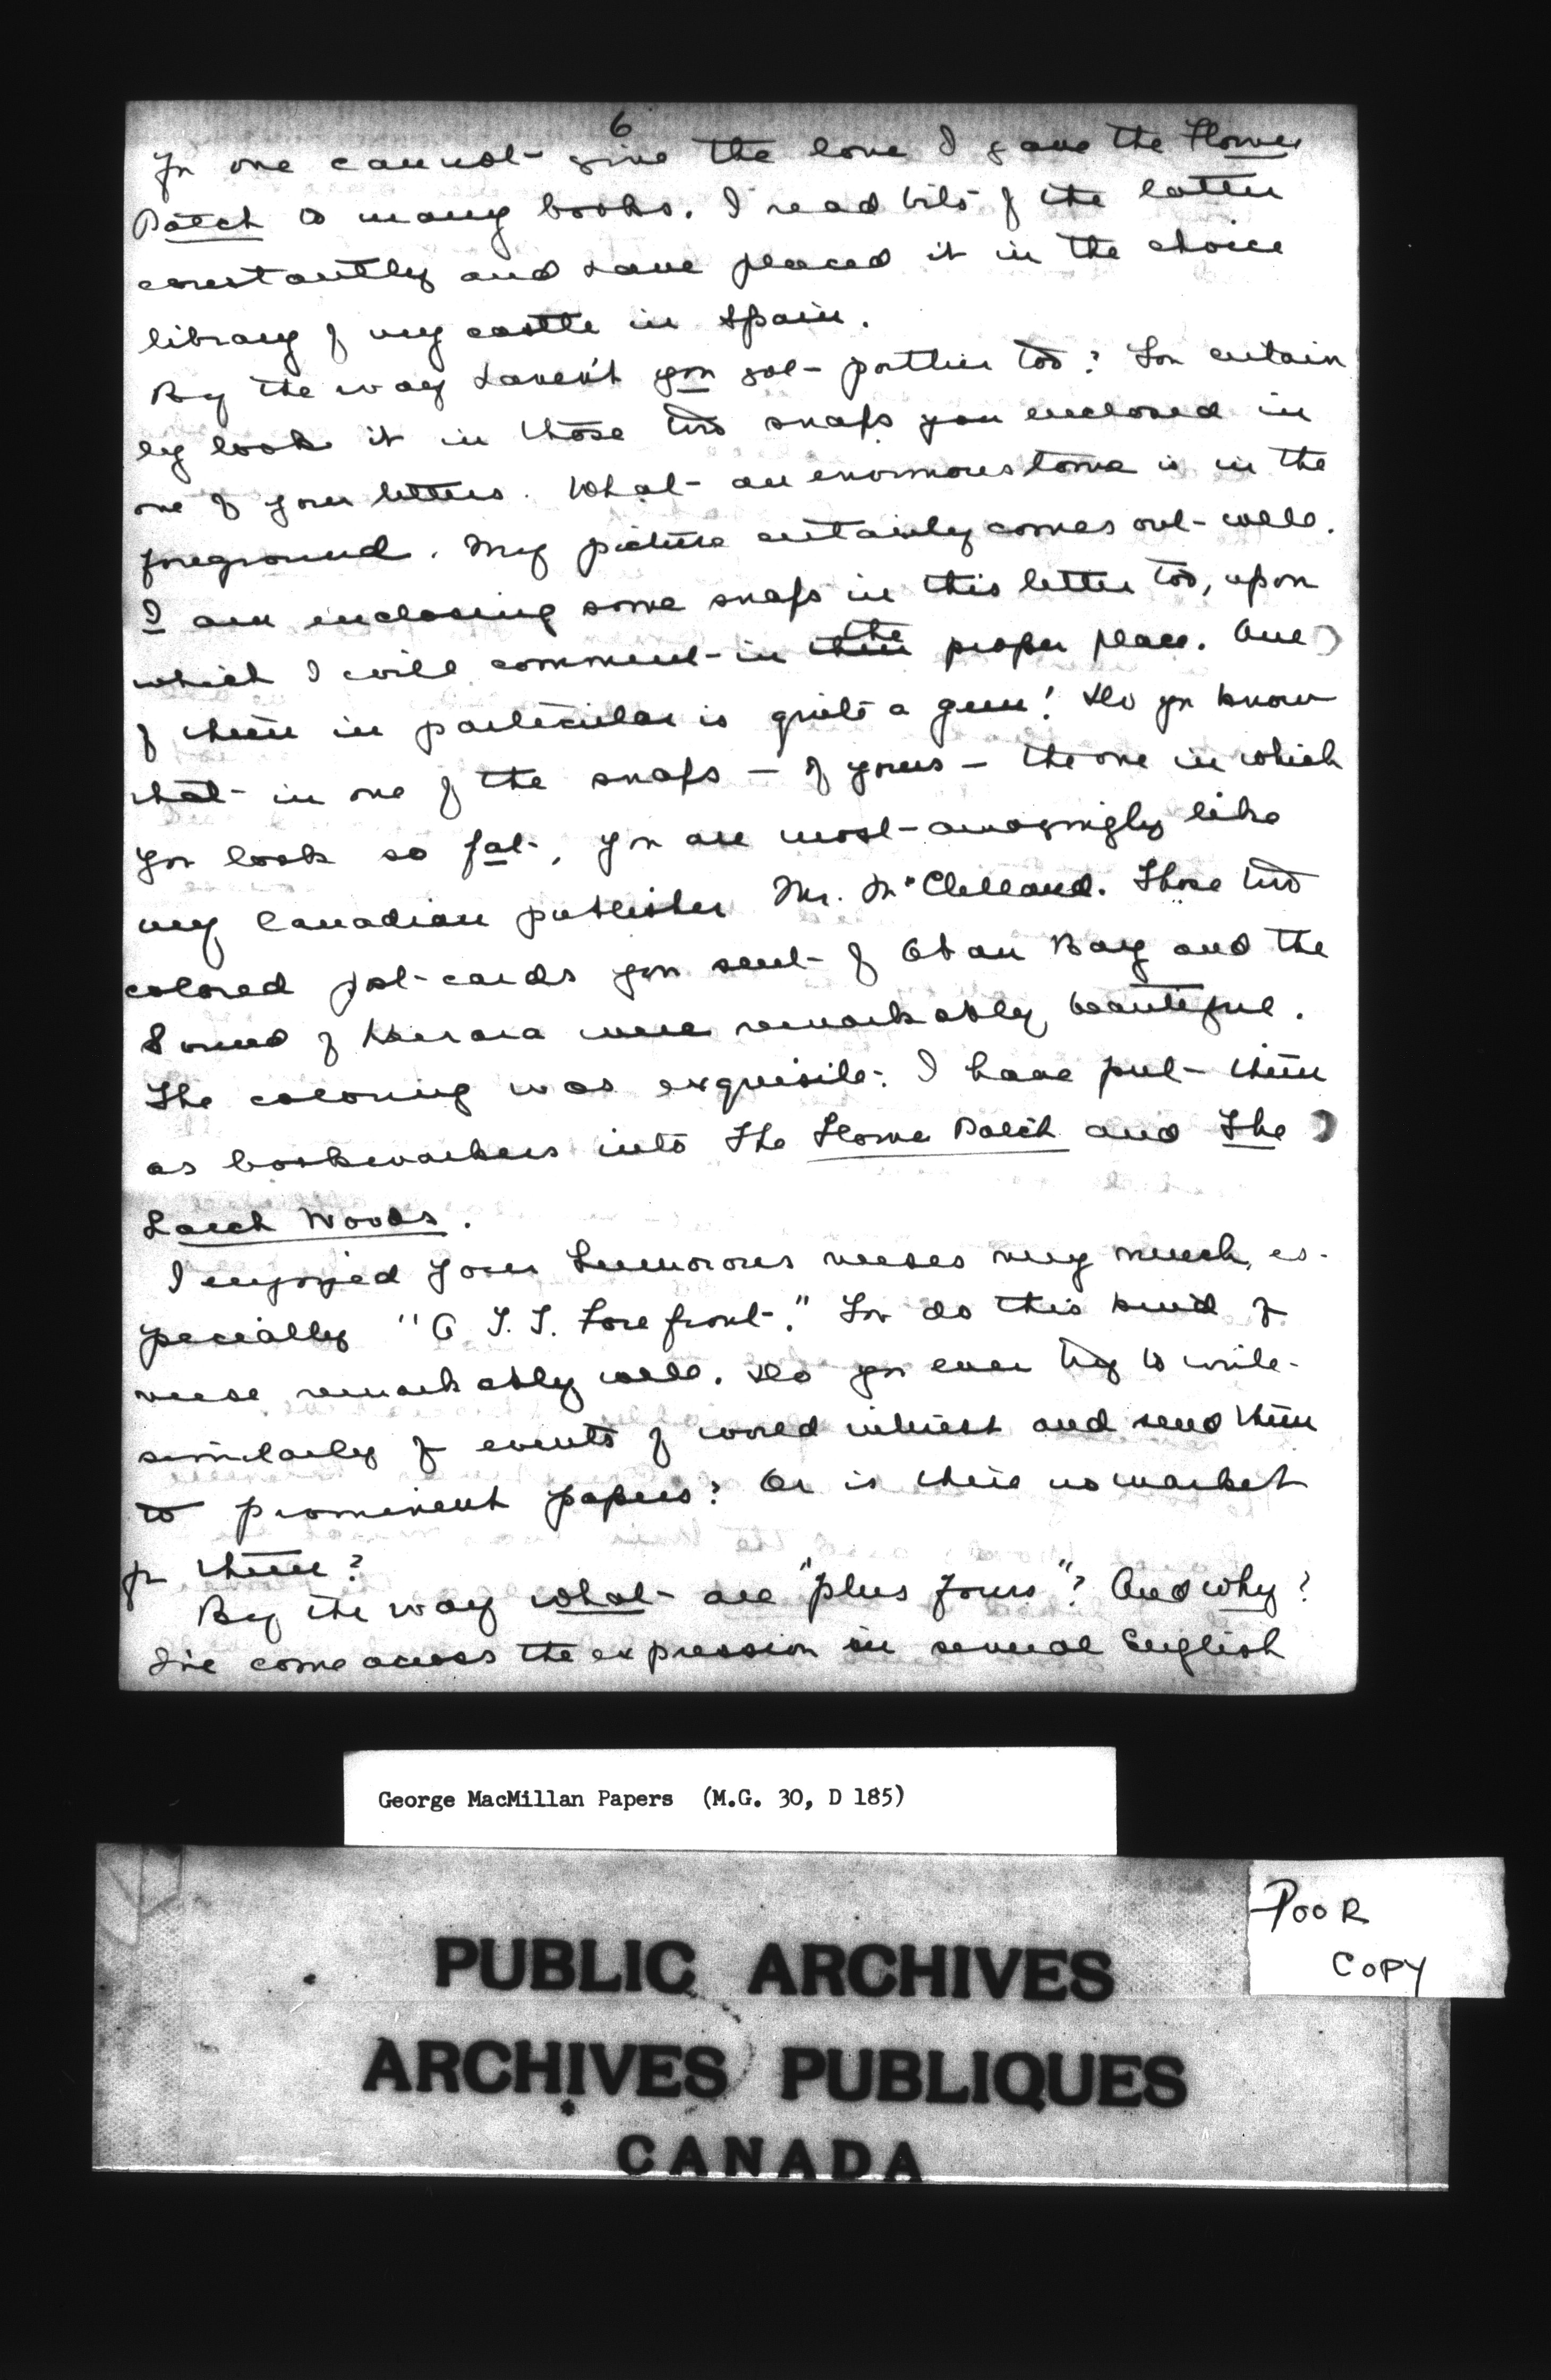 6
for one cannot give the love I gave the Flower
Patch to many books. I read bits of the latter
constantly and have placed it in the choice
library of my castle in Spain.
By the way haven't you got fattier too? You certain
ly look it in those two snaps you enclosed in
one of your letters. What an enormous tome is in the
foreground. My picture certainly comes out well.
I am inclosing some snaps in this letter too, upon
which I will comment in their the proper place. One
of them in particular is quite a gem! Do you know
that in one of the snaps – of yours – the one in which
you look so fat, you are most amazingly like
my Canadian publisher Mr. McClelland. Those two
colored post-cards you sent of Oban Bay and the
Sound of Kerrera were remarkably beautiful.
The coloring was exquisite. I have put them
as bookmarkers into The Flower Patch and The
Larch Woods.
I enjoyed your humorous verses very much, es-
pecially "A T.T. Forefront." You do this kind of
verse remarkably well. Do you ever try to write
similarly of events of world interest and send them
to prominent papers? Or is there no market
for them?
By the way what are "plus fours"? And why?
I've come across the expression in several English
George MacMillan Papers (M.G. 30, D 185)
POOR
COPY
PUBLIC ARCHIVES
ARCHIVES PUBLIQUES
CANADA